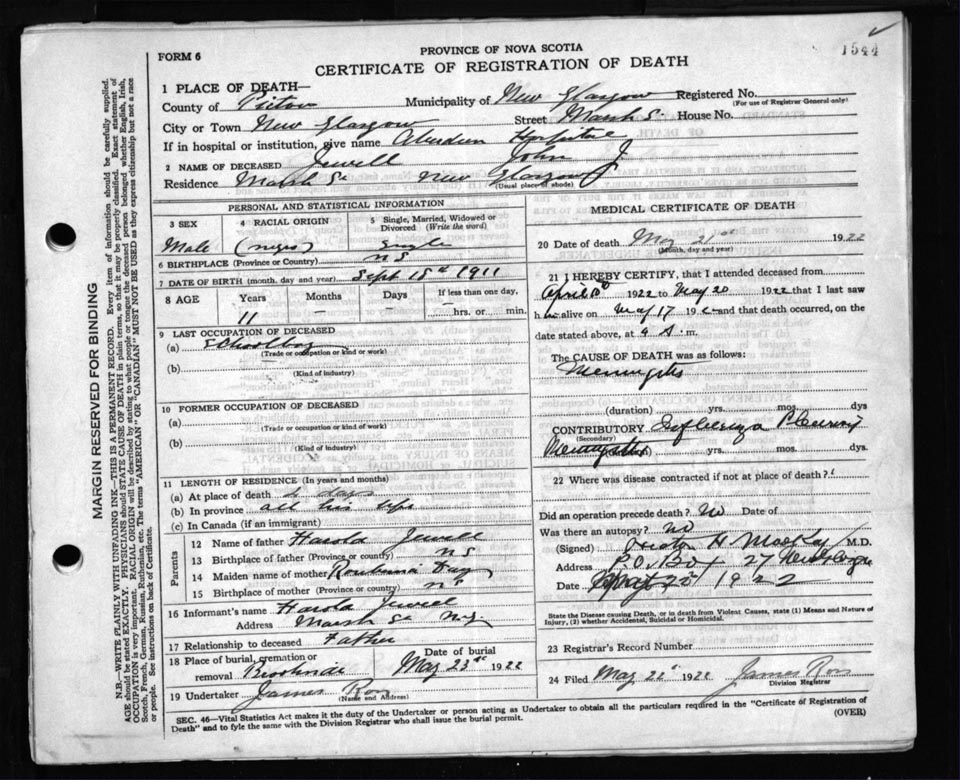 1544
FORM 6
PROVINCE OF NOVA SCOTIA
CERTIFICATE OF REGISTRATION OF DEATH
1 PLACE OF DEATH—
County of Pictou Municipality of New Glasgow Registered No.
(For use of Registrar General only)
City or Town New Glasgow Street Marsh St House No.
If in hospital or institution, give name Aberdeen Hospital
2 NAME OF DECEASED Jewell John J.
Residence Marsh St New Glasgow
(Usual place of abode)
PERSONAL AND STATISTICAL INFORMATION
3 SEX 4 RACIAL ORIGIN 5 Single, Married, Widowed or Divorced (Write the word)
Male (negro) Single
6 BIRTHPLACE (Province or Country) NS
7 DATE OF BIRTH (month, day and year) Sept 18th 1911
8 AGE Years Months Days If less than one day,
11 — — hrs. or min.
9 LAST OCCUPATION OF DECEASED
(a) Schoolboy
(Trade or occupation or kind or work)
(b)
(Kind of industry)
10 FORMER OCCUPATION OF DECEASED
(a)
(Trade or occupation or kind or work)
(b)
(Kind of industry)
11 LENGTH OF RESIDENCE (In years and months)
(a) At place of death days
(b) In province all his life
(c) In Canada (if an immigrant)
Parents
12 Name of father Harold Jewell
13 Birthplace of father (Province or country) NS
14 Maiden name of mother
15 Birthplace of mother (Province or country) NS
16 Informant's name Harold Jewell
Address Marsh St N.G.
17 Relationship to deceased Father
18 Place of burial, cremation or removal Date of burial
May 23rd 1922
19 Undertaker James Ross
(Name and Address)
MEDICAL CERTIFICATE OF DEATH
20 Date of death May 21st 1922
(Month, day and year)
21 I HEREBY CERTIFY, that I attended deceased from
April 1922 to May 20 1922 that I last saw
him alive on May 17 192 and that death occurred, on the
date stated above, at 9 A. m.
The CAUSE OF DEATH was as follows:
Meningitis
(duration) yrs. mos. dys
CONTRIBUTORY
(Secondary)
(duration) yrs. mos. dys
22 Where was disease contracted if not at place of death?
Did an operation precede death? No Date of
Was there an autopsy? No
(Signed) H MacKay M.D.
Address P.O. Box 27 New Glasgow
Date 1922
State the Disease causing Death, or in death from Violent Causes, state (1) Means and Nature of Injury, (2) whether Accidental, Suicidal or Homicidal.
23 Registrar's Record Number
24 Filed May 22 1922 James Ross
Division Registrar
SEC. 46—Vital Statistics Act makes it the duty of the Undertaker or person acting as Undertaker to obtain all the particulars required in the "Certificate of Registration of
Death" and to fyle the same with the Division Registrar who shall issue the burial permit.
(OVER)
MARGIN RESERVED FOR BINDING
N.B.—WRITE PLAINLY WITH UNFADING INK—THIS IS A PERMANENT RECORD. Every item of information should be carefully supplied.
AGE should be stated EXACTLY. PHYSICIANS should STATE CAUSE OF DEATH in plain terms, so that it may be properly classified. Exact statement of
OCCUPATION is very important. RACIAL ORIGIN will be described by stating to what people or tongue the deceased person belonged whether English, Irish,
Scotch, French, German, Russian, Ruthenian, etc. The terms "AMERICAN" OR "CANADIAN" MUST NOT BE USED as they express citizenship but not a race
or people. See instructions on back of Certificate.